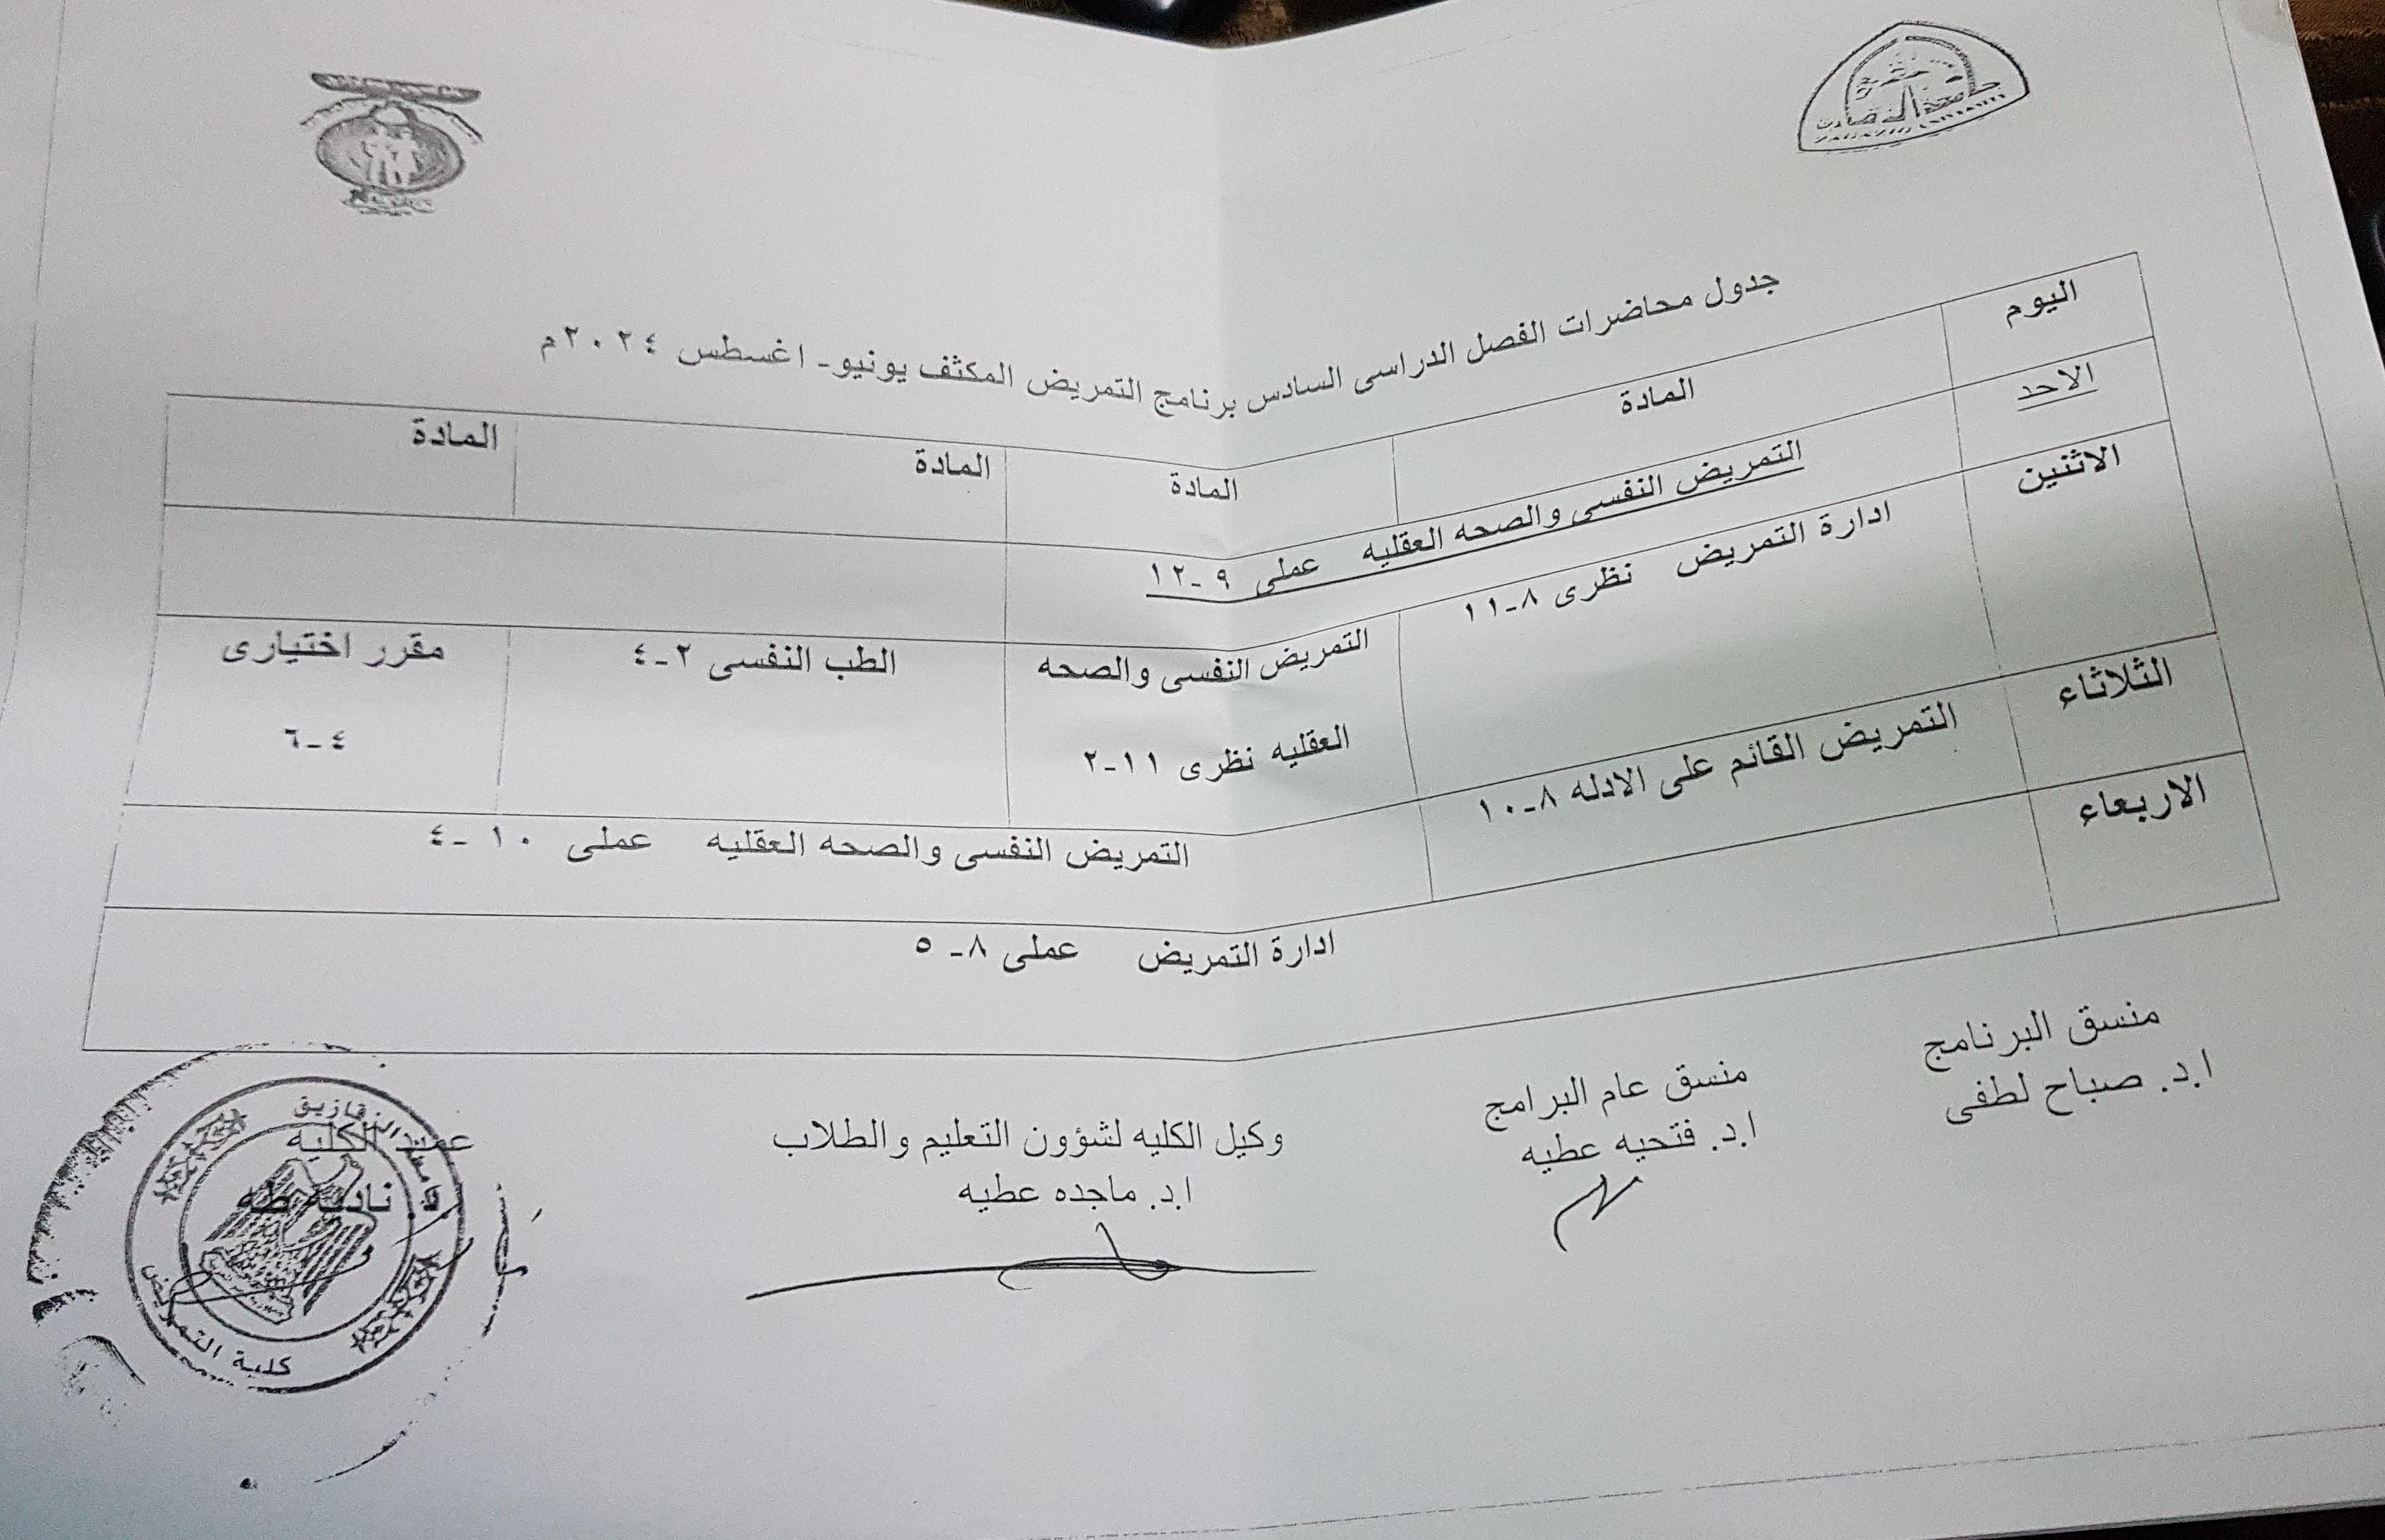 جامعة الزقازيق
ZAGAZIG UNIVERSITY
جدول محاضرات الفصل الدراسى السادس برنامج التمريض المكثف يونيو- اغسطس ٢٠٢٤م
اليوم المادة المادة المادة المادة
الاحد التمريض النفسى والصحه العقليه عملى ٩ -١٢
الاثنين ادارة التمريض نظرى ٨-١١ التمريض النفسى والصحه الطب النفسى ٢-٤ مقرر اختيارى
العقليه نظرى ١١-٢ ٤-٦
الثلاثاء التمريض القائم على الادله ٨-١٠ التمريض النفسى والصحه العقليه عملى ١٠ -٤
الاربعاء ادارة التمريض عملى ٨- ٥
منسق البرنامج
ا.د. صباح لطفى
منسق عام البرامج
ا.د. فتحيه عطيه
وكيل الكليه لشؤون التعليم والطلاب
ا.د. ماجده عطيه
عميد الكليه
نادية طه
جامعة الزقازيق
كلية التمريض